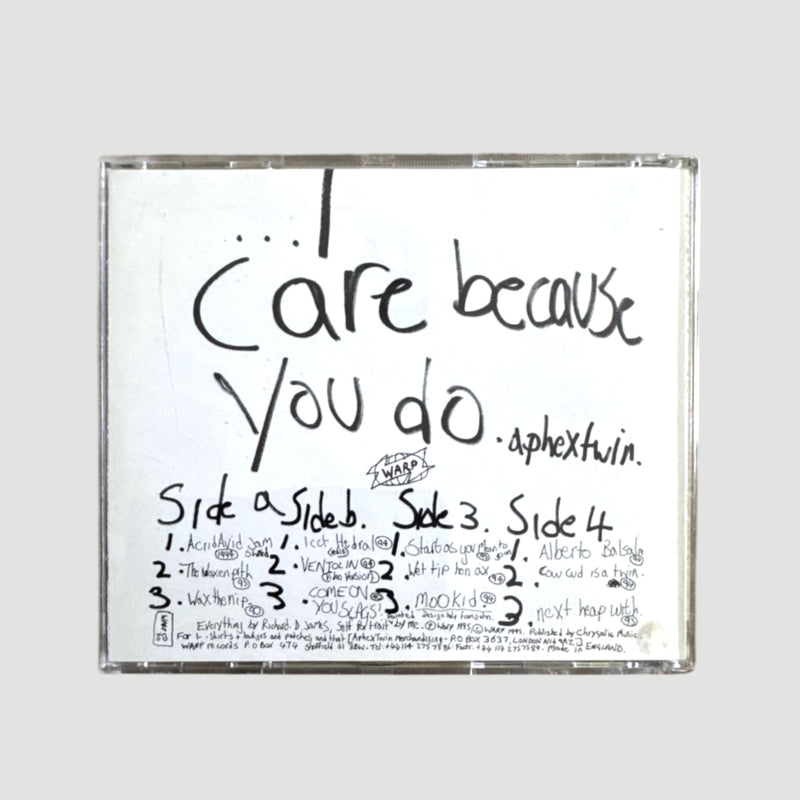 ...I
Care because
you do. aphextwin.
WARP
Side a
1. Acrid Avid Jam Shred
1994
2. The Waxen pith
93
3. Wax the nip
Side b.
1. Icct Hedral 94
(edit)
2. VENTOLIN 94
3. COME ON
YOU SLAGS!
Side 3.
1. Start as you Mean to go on
2. Wet tip hen ax 94
3. MOOKid. 94
Side 4
1. Alberto Balsalm
2. Cow cud is a twin.
94
3. next heap with.
93
Everything by Richard. D. James, Self Portrait by me. ℗ Warp 1995, © WARP 1995. Published by Chrysalis Music
For t-shirts + badges and patches and that [AphexTwin Merchandising- PO BOX 3637, LONDON N14 9AZ]
WARP records P.O Box 474 Sheffield S1 3BW. Tel: +44 114 2757586. Facs: +44 114 2757589. Made in ENGLAND.